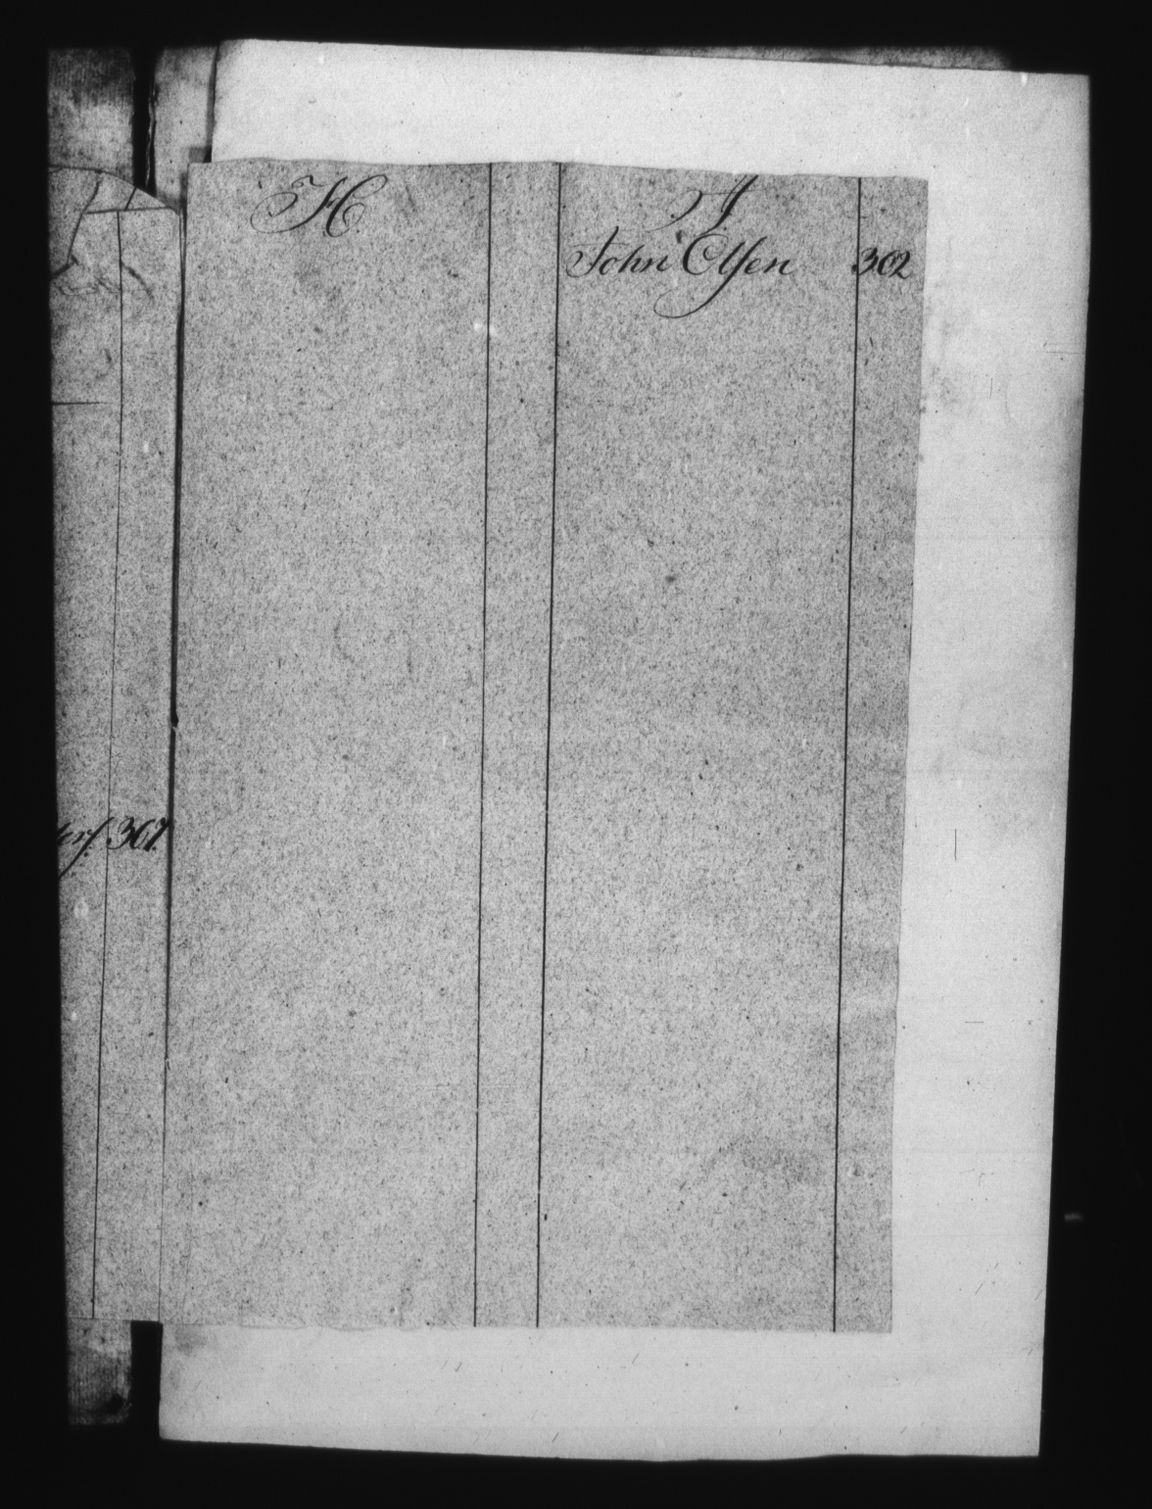 H.
J.
John Olsen 302
307.